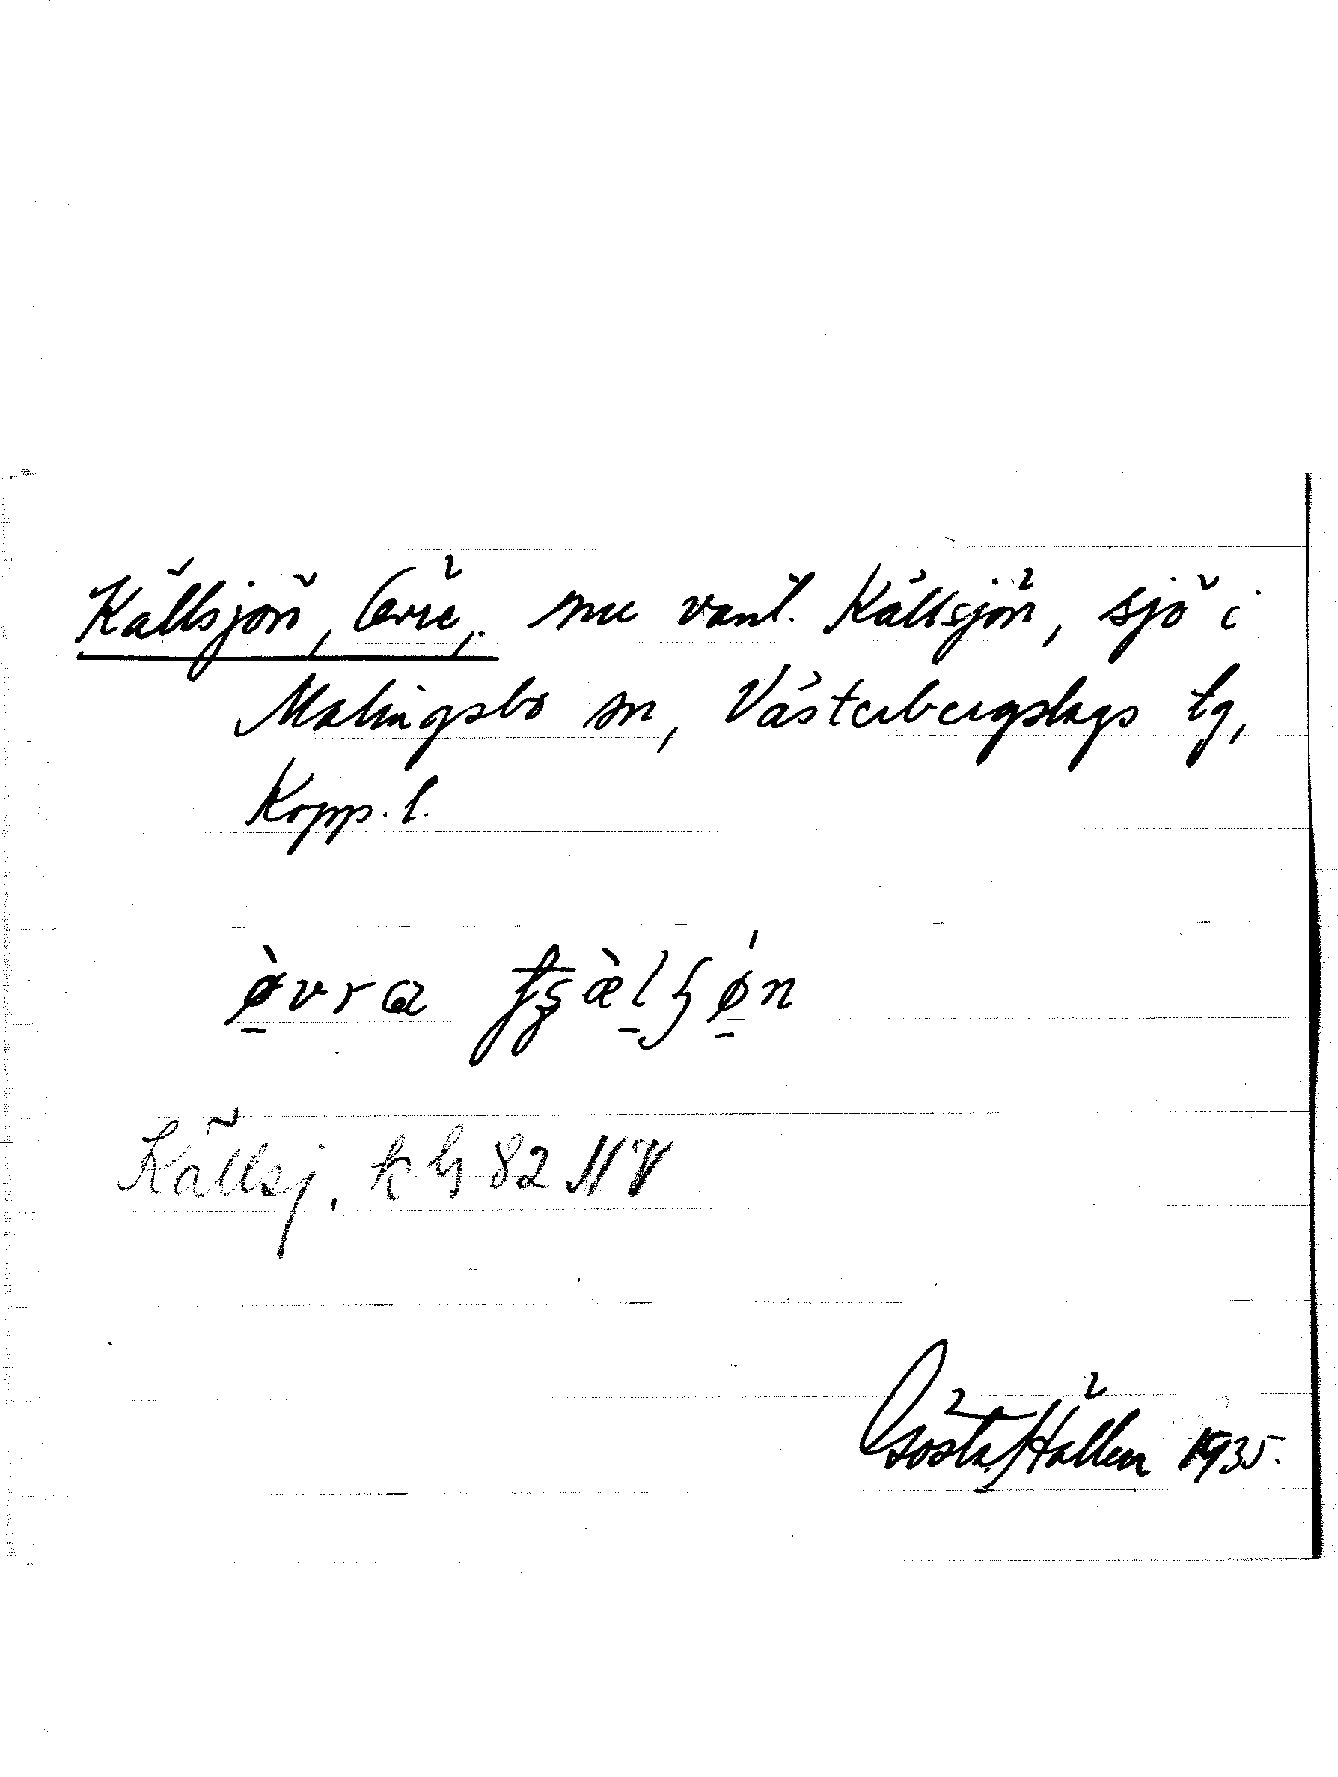 Källsjön, Övre, nu vanl. Källsjön, sjö i
Malingsbo sn, Västerbergslags tg,
Kopp. l.
Källsj. kbl 82 NV
Gösta Hallen 1935.